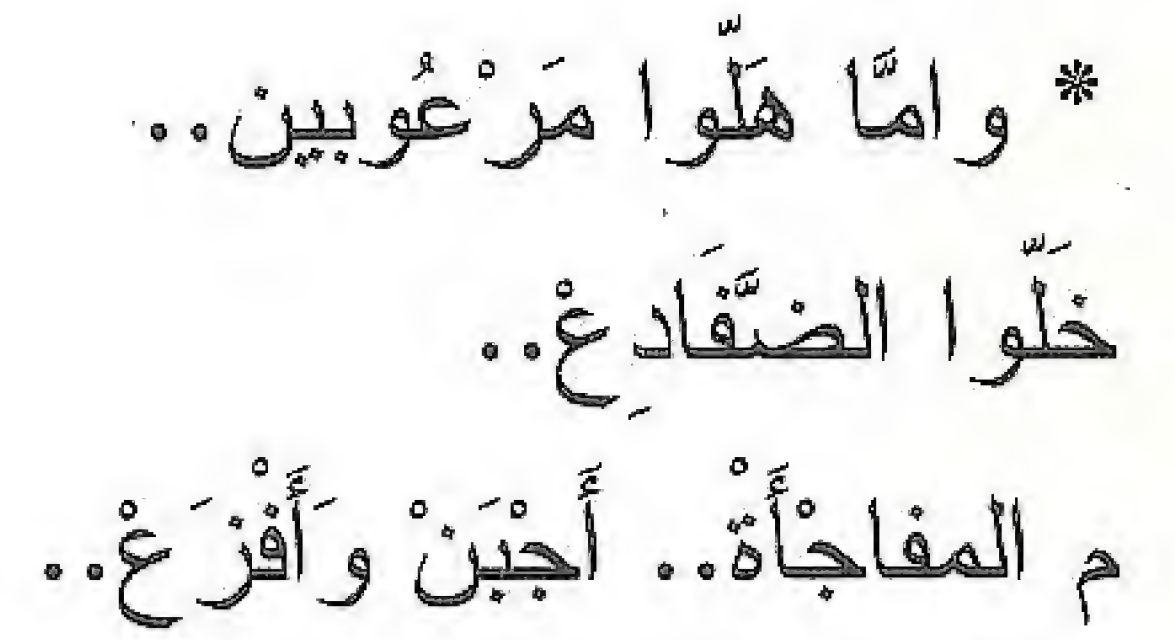 * و امَّا هَلّوا مَرْعُوبين..
خَلّوا الضَّفَادِعْ..
م المفاجْأَةْ.. أَجْبَنْ وَأَفْزَعْ..